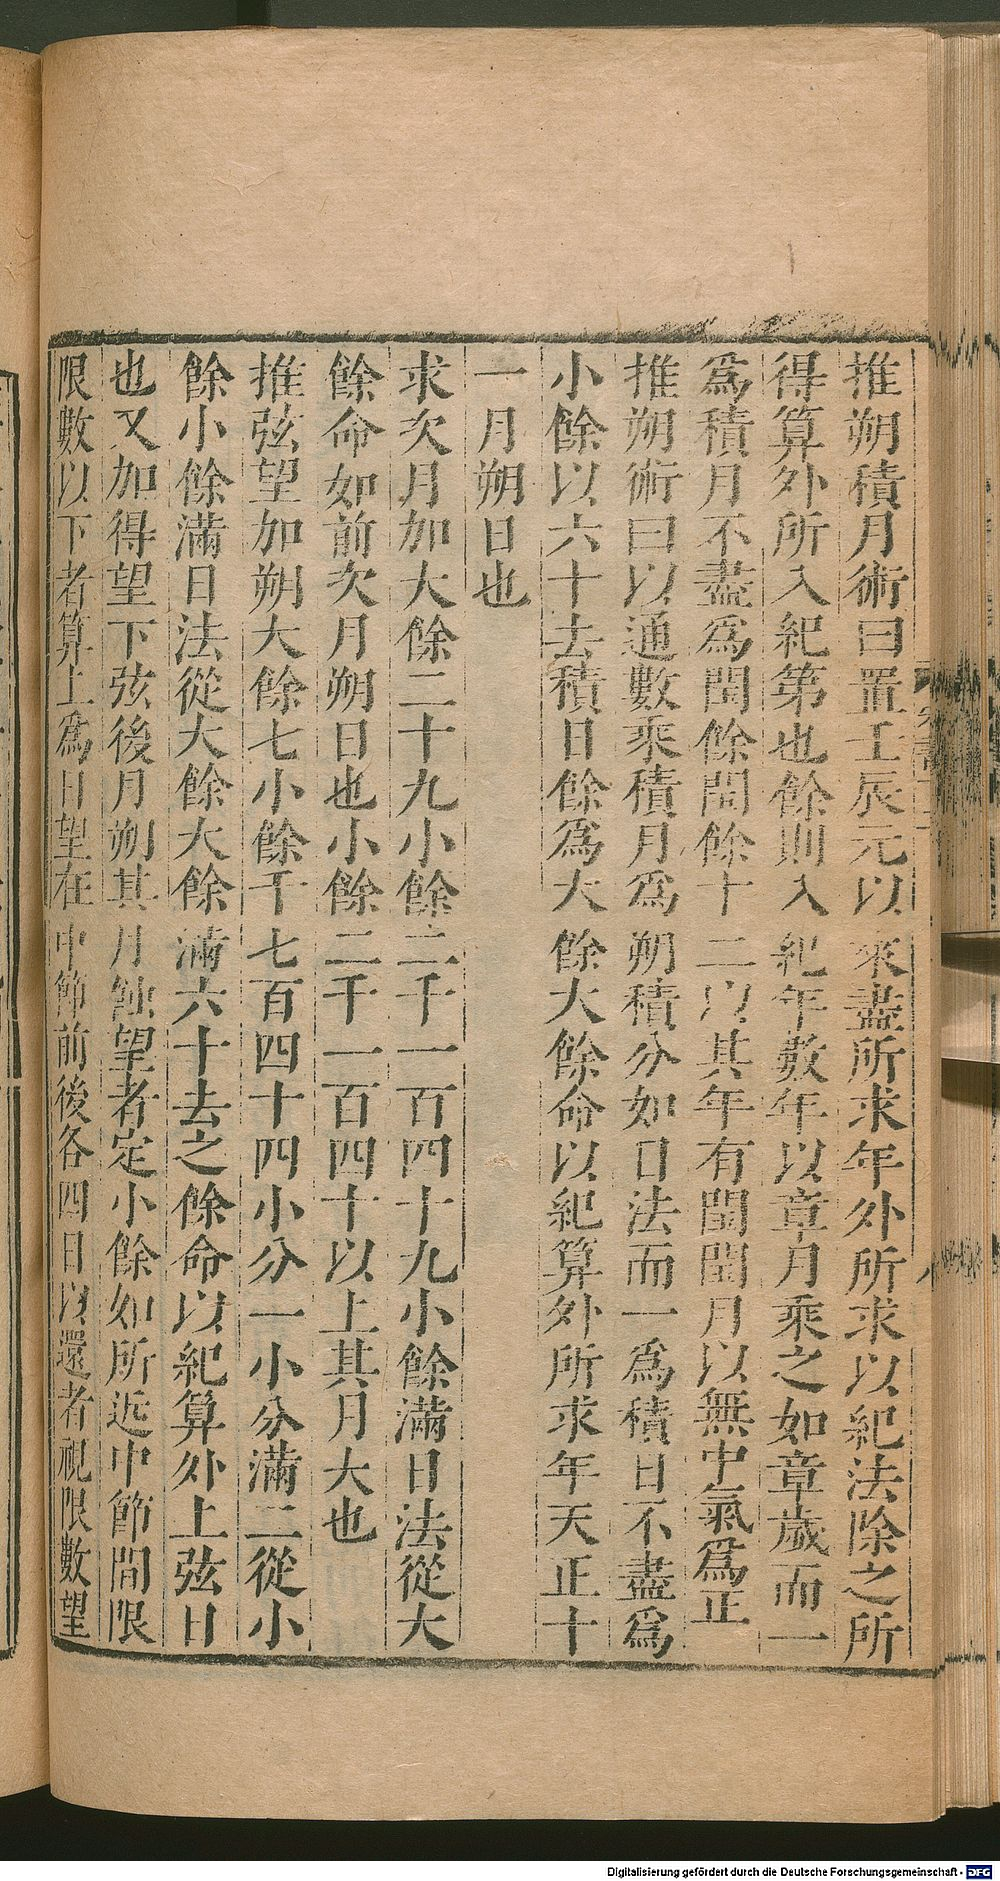 推朔積月術曰置壬辰元以來盡所求年外所求以紀法除之所
得算外所入紀第也餘則入紀年數年以章月乘之如章歲而一
爲積月不盡爲閏餘閏餘十二以其年有閏閏月以無中氣爲正
推朔術曰以通數乘積月爲朔積分如日法而一爲積日不盡爲
小餘以六十去積日餘爲大餘大餘命以紀算外所求年天正十
一月朔日也
求次月加大餘二十九小餘二千一百四十九小餘滿日法從大
餘命如前次月朔日也小餘二千一百四十以上其月大也
推弦望加朔大餘七小餘千七百四十四小分一小分滿二從小
餘小餘滿日法從大餘大餘滿六十去之餘命以紀算外上弦日
也又加得望下弦後月朔其月蝕望者定小餘如所近中節間限
限數以下者算上爲日望在中節前後各四日以還者視限數望
Digitalisierung gefördert durch die Deutsche Forschungsgemeinschaft - DFG